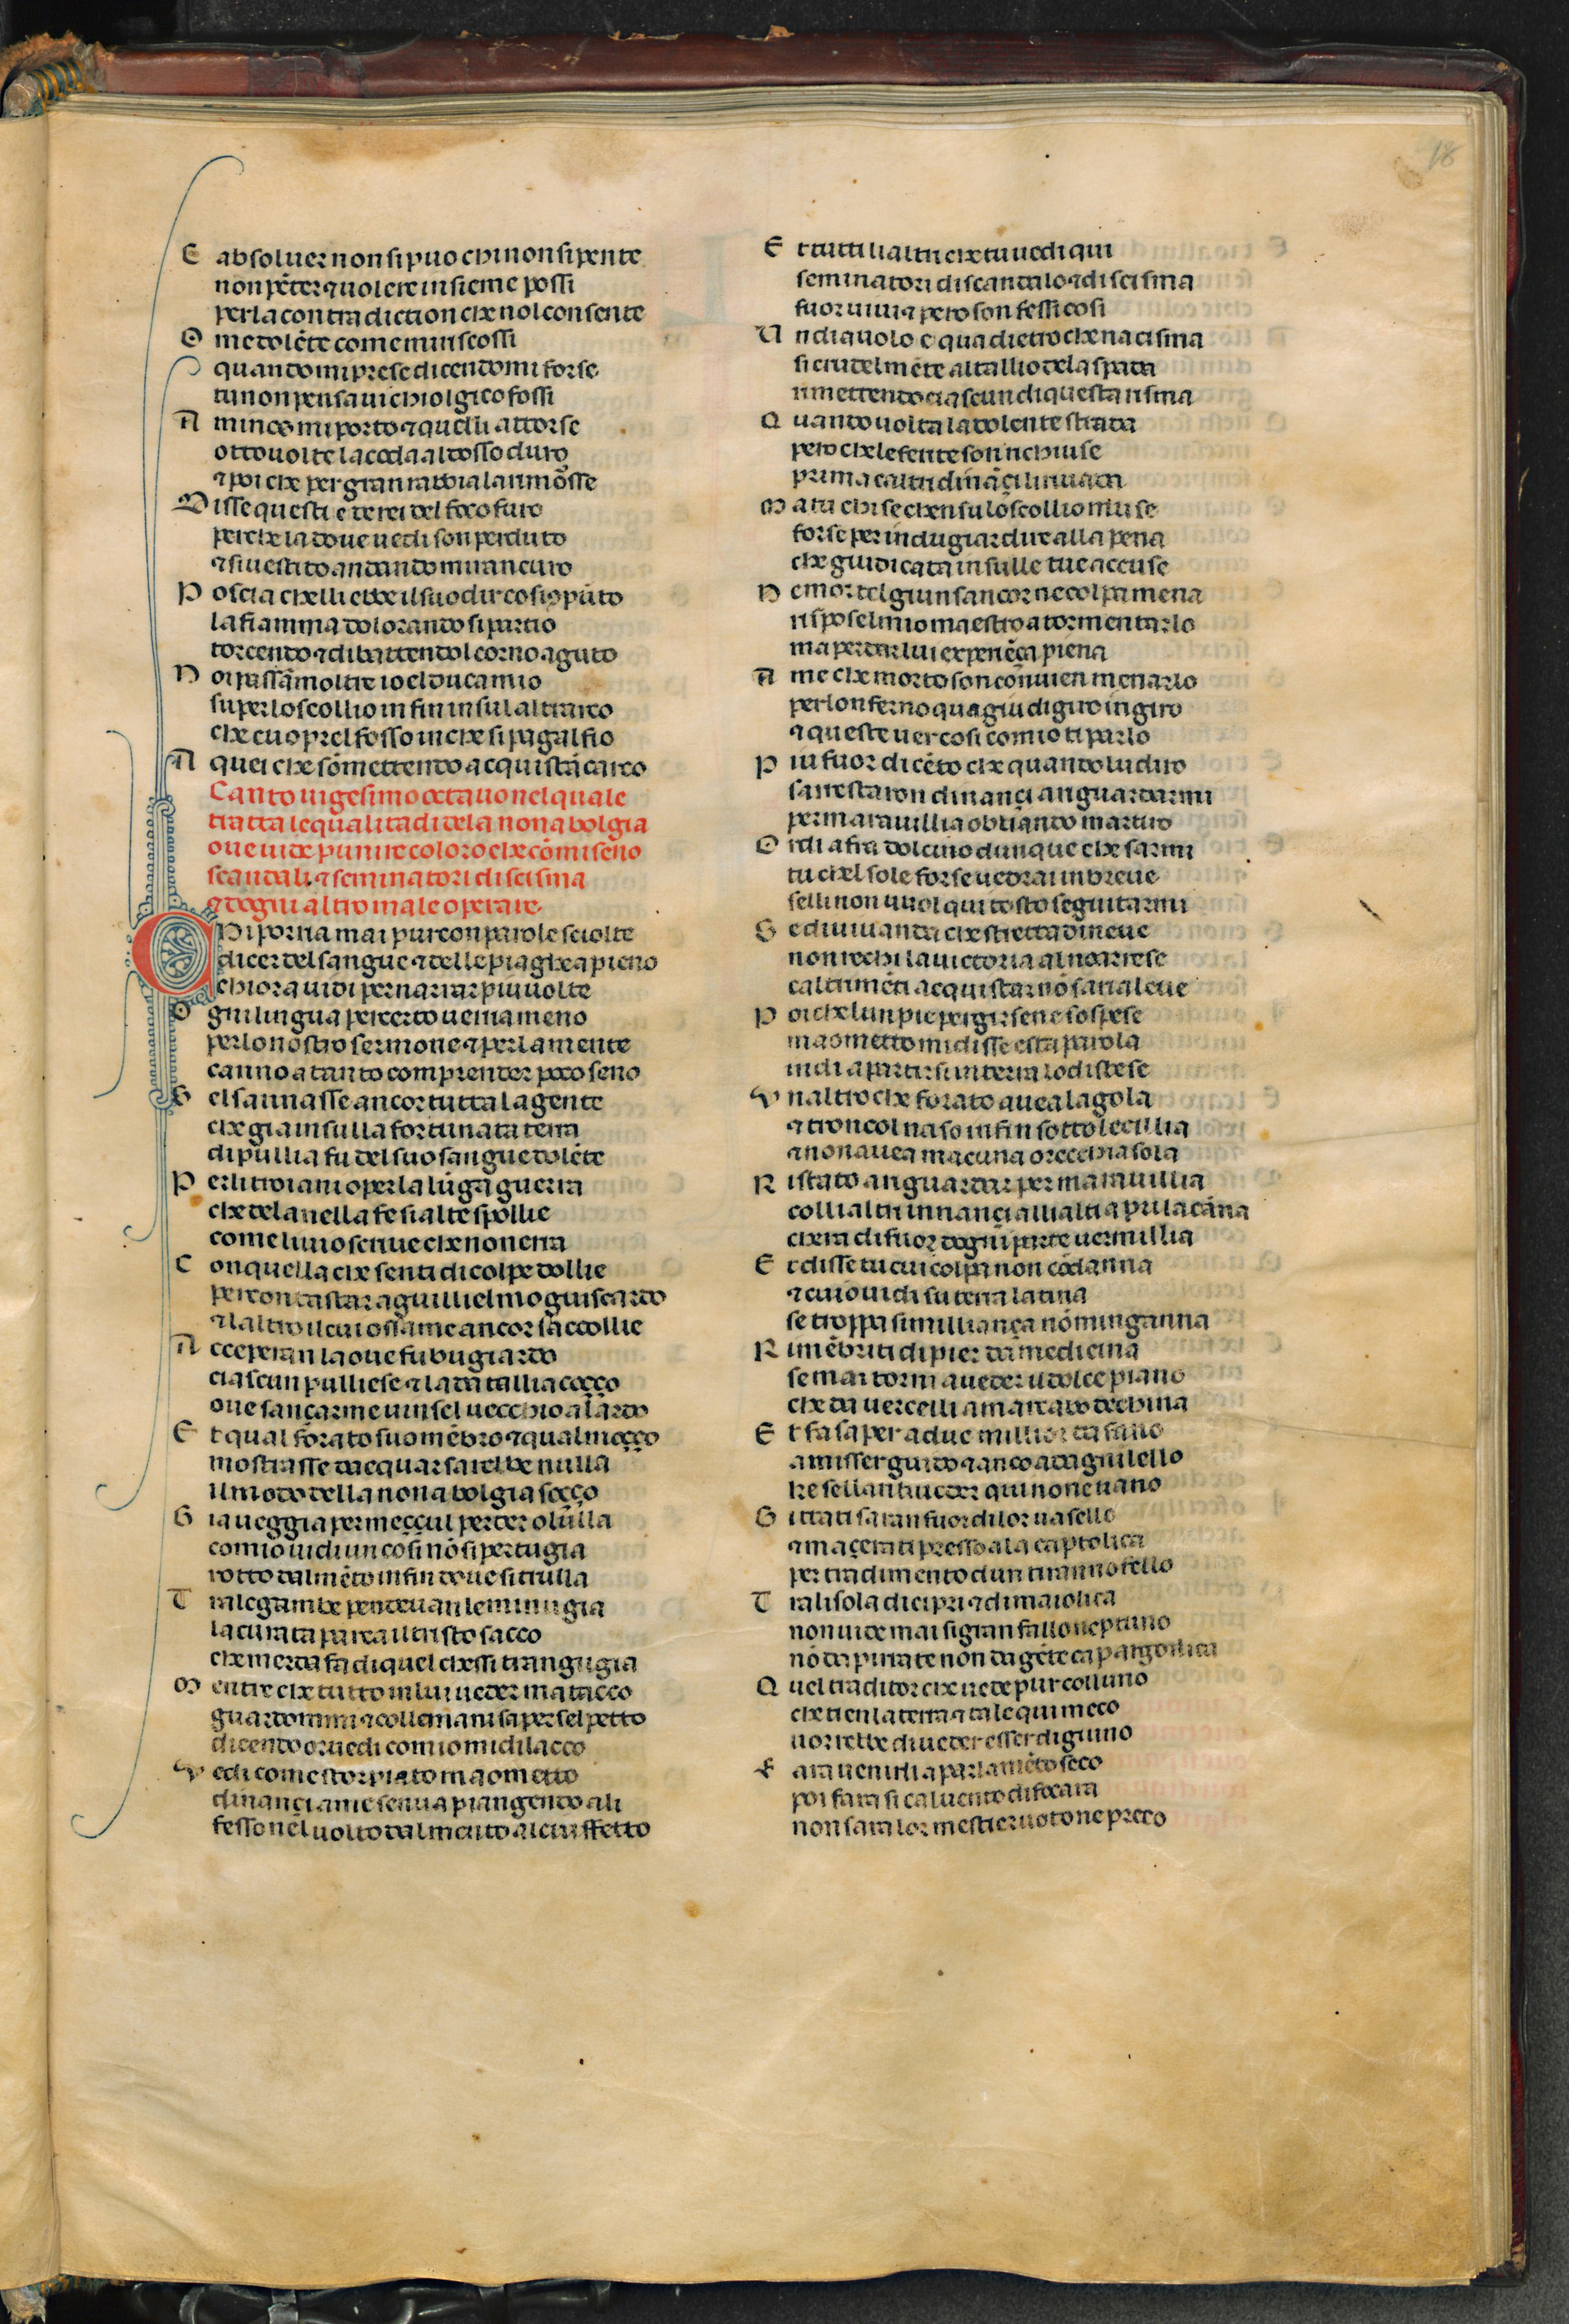 18
E absoluer non si puo chi non si pente
non pẽter ⁊ uolere insieme possi
per la contradiction che nol consente
O me dolẽte come mi riscossi
quando mi prese dicendomi forse
tu non pensaui chio loigico fossi
A minos mi porto ⁊ quelli attorse
otto uolte la coda al dosso duro
⁊ poi che per gran rabbia la si morse
D isse questi e de rei del foco furo
perche la doue uedi son perduto
⁊ si uestito andando mi rancuro
P oscia chelli ebbe il suo dir cosi ɔpiuto
la fiamma dolorando si partio
torcendo ⁊ dibattendol corno aguto
N oi passãmo oltre io el duca mio
su per lo scollio infin in sul altrarco
che cuoprel fosso in che si paga il fio
A quei che scomettendo acquistã carco
Canto uigesimo octauo nel quale
tratta le qualitadi dela nona bolgia
oue uide punire coloro che cõmiseno
scandali ⁊ seminatori di scisma
⁊ dogni altro male operare
CHi poria mai pur con parole sciolte
dicer del sangue ⁊ delle piaghe a pieno
chiora uidi per narrar piu uolte
O gni lingua per certo ueria meno
per lo nostro sermone ⁊ per la mente
canno a tanto comprender poco seno
S el saunasse ancor tutta la gente
che gia in sulla fortunata terra
di pullia fu del suo sangue dolẽte
P er li troiani o per la lũga guerra
che dela nella fe si alte spollie
come liuio scriue che non erra
C on quella che senti di colpe dollie
per contastar a guillielmo guiscardo
⁊ laltro il cui ossame ancor saccollie
A cceperan la oue fu bugiardo
ciascun pulliese ⁊ la da talliacoçço
oue sançarme uinsel uecchio alardo
E t qual forato suo mẽbro ⁊ qual moçço
mostrasse daequar sarebbe nulla
il modo della nona bolgia soçço
G ia ueggia per meççul perder o lulla
comio uidi un cosi nõ si pertugia
rotto dal mẽto infin doue si trulla
T ra le gambe pendeuan le minugia
la curata parea il tristo sacco
che merda fa di quel chessi trangugia
M entre che tutto in lui ueder mattacco
guardommi ⁊ colle mani saperse il petto
dicendo or uedi comio mi dilacco
V edi come storpiato maometto
dinançi a me sen ua piangendo ali
fesso nel uolto dal mento al ciuffetto
E t tutti li altri che tu uedi qui
seminatori di scandalo ⁊ di scisma
fuor uiui ⁊ pero son fessi cosi
U n diauolo e qua dietro che nacisma
si crudelmẽte al tallio dela spada
rimettendo ciascun di questa risma
Q uando uolta la dolente strada
pero che le ferite son richiuse
prima caltri dinãçi li riuada
M a tu chi se chen su lo scollio muse
forse per indugiar dire alla pena
che giudicata in sulle tue accuse
N e mortel giunsancor ne colpa mena
rispose l mio maestro a tormentarlo
ma per dar lui experiẽça piena
A me che morto son conuien menarlo
per lonferno qua giu di giro in giro
⁊ queste uer cosi comio ti parlo
P iu fuor di cẽto che quando ludiro
sarrestaron dinançi a riguardarmi
per marauillia obliando martiro
O r di a fra dolcino dunque che sarmi
tu chel sole forse uedrai in breue
selli non uuol qui tosto seguitarmi
S e di uiuanda che stretta di neue
non rechi la uictoria al noarrese
caltrimẽti acquistar nõ saria leue
P oi che lun pie per girsene sospese
maometto mi disse esta parola
indi a partirsi in terra lo distese
V naltro che forato auea la gola
⁊ tronco l naso infin sotto le cillia
⁊ non auea ma cuna orecchia sola
R istato a riguardar per marauillia
colli altri innançi alli altri apri la cãna
chera di fuor dogni parte uermillia
E t disse tu cui colpa non cõdanna
⁊ cui io uidi su terra latina
se troppa similliança nõ minganna
R imẽbriti di pier da medicina
se mai torni a ueder il dolce piano
che da uercelli a marcabo dechina
E t fa saper a due millior da fano
a misser guido ⁊ anco ad agniolello
che sellantiueder qui none uano
G ittati saran fuor di lor uasello
⁊ maçerati presso ala captolica
per tradimento dun tiranno fello
T ra lisola di cipri ⁊ di maiolica
non uide mai si gran fallo neptuno
nõ da pirate non da gẽte argolica
Q uel traditor che uede pur colluno
che tien la terra ⁊ tale qui meco
uorrebbe di ueder esser digiuno
F ara uenirli a parlamẽto seco
poi fara si cal uento di focara
non sara lor mestier uoto ne preco